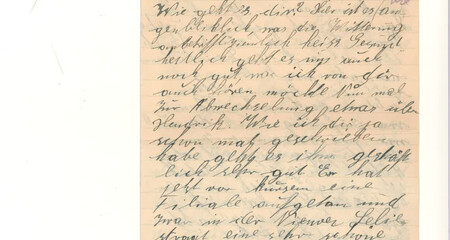 Wie geht es dir? Hier ist es au-
genblicklich, was die Witterung
anbetrifft ziemlich heiss. Gesund-
heitlich geht es uns auch
noch gut, wie ich von dir
auch hören möchte. Nun mal
zur Abwechselung etwas über
Hendrik. Wie ich dir ja
schon mal geschrieben
habe geht es ihm geschäft-
lich sehr gut. Er hat
jetzt vor kurzem eine
Filiale aufgetan und
zwar in der Nieuwe
straat eine sehr schöne